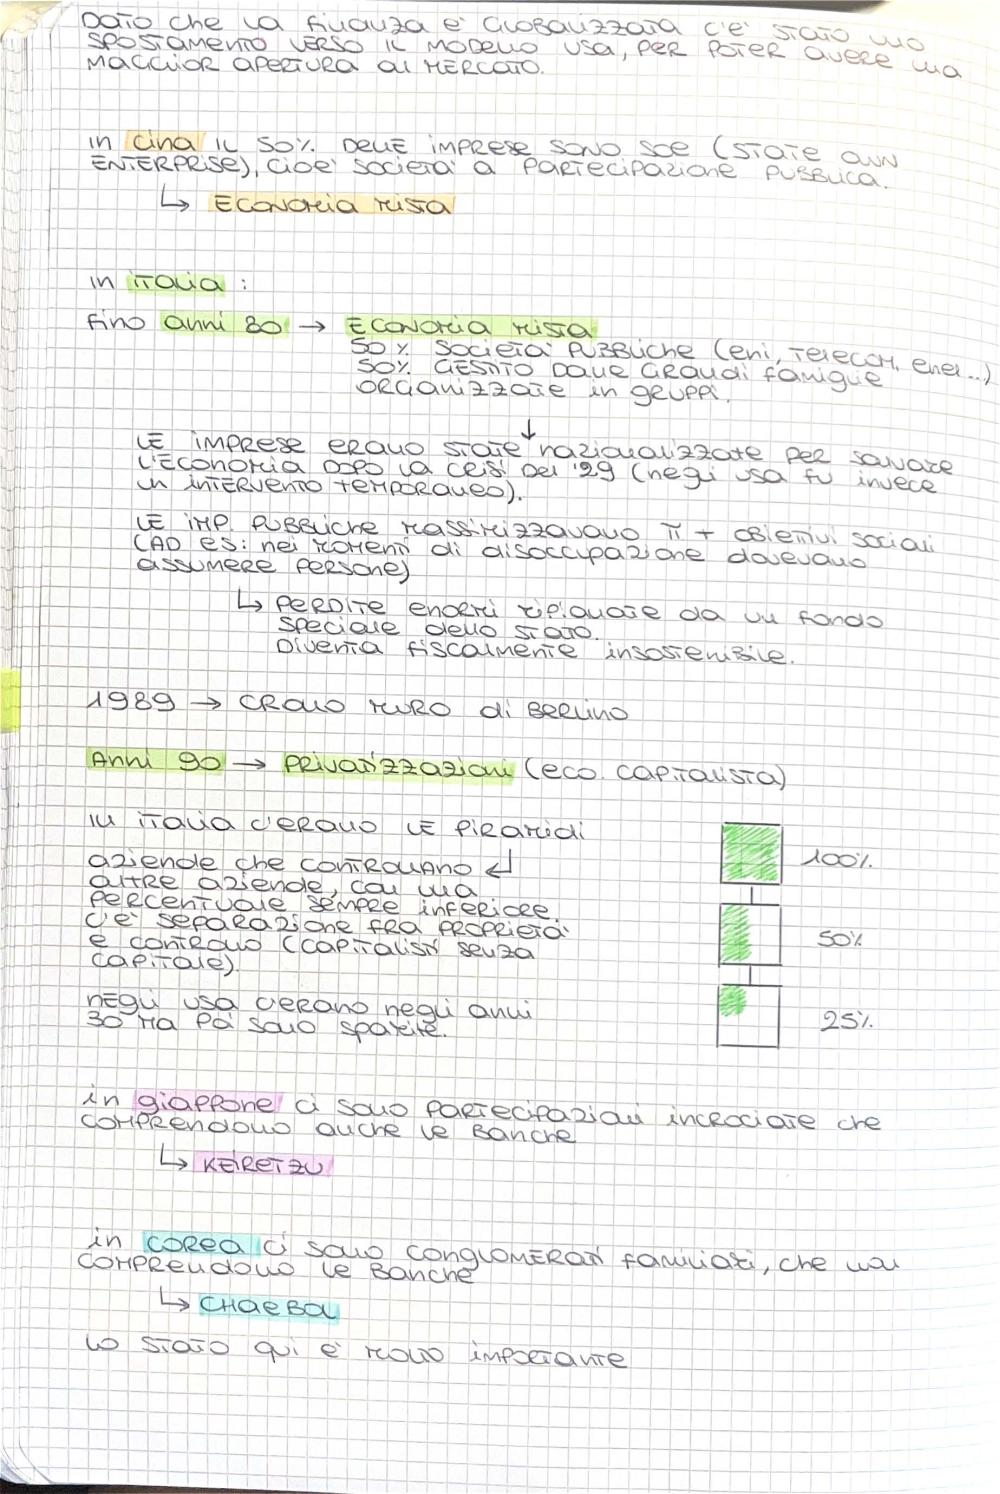 DATO che la finanza è GLOBALIZZATA c'è stato uno
SPOSTAMENTO VERSO IL MODELLO USA, PER POTER avere una
MAGGIOR APERTURA al MERCATO.
in cina il 50% DELLE IMPRESE SONO SOE (STATE OWN
ENTERPRISE), cioè società a PARTECIPAZIONE PUBBLICA.
↳ ECONOMIA MISTA
in italia :
fino anni 80 → ECONOMIA MISTA
50% SOCIETÀ PUBBLICHE (eni, TELECOM, enel...)
50% GESTITO DALLE GRANDI famiglie
ORGANIZZATE in gruppi.
↓
LE IMPRESE ERANO STATE nazionalizzate per salvare
L'ECONOMIA DOPO LA CRISI DEL '29 (negli usa fu invece
un INTERVENTO TEMPORANEO).
LE IMP. PUBBLICHE MASSIMIZZAVANO π + OBIETTIVI sociali
(AD es: nei momenti di disoccupazione dovevano
assumere persone)
↳ PERDITE enormi ripianate da un fondo
speciale dello STATO.
Diventa fiscalmente insostenibile.
1989 → CROLLO MURO di BERLINO
Anni 90 → PRIVATIZZAZIONI (eco. CAPITALISTA)
IN ITALIA C'ERANO LE PIRAMIDI
aziende che CONTROLLANO ↲
ALTRE aziende, con una
PERCENTUALE SEMPRE INFERIORE.
C'È SEPARAZIONE FRA PROPRIETÀ
E CONTROLLO (CAPITALISTI senza
CAPITALE).
100%
50%
25%
negli usa c'erano negli anni
30 ma poi sono sparite.
in giappone ci sono PARTECIPAZIONI incrociate che
COMPRENDONO anche le BANCHE
↳ KEIRETZU
in COREA ci sono CONGLOMERATI familiari, che non
COMPRENDONO le BANCHE
↳ CHAEBOL
LO STATO qui è molto importante